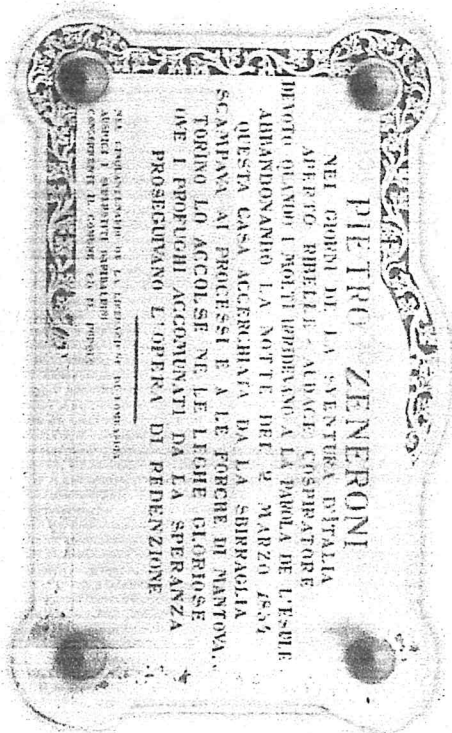 PIETRO ZENERONI
NEI GIORNI DE LA SVENTURA D'ITALIA
APERTO RIBELLE - AUDACE COSPIRATORE
DEVOTO QUANDO I MOLTI IRRIDEVANO A LA PAROLA DE L'ESULE
ABBANDONANDO LA NOTTE DEL 2 MARZO 1854
QUESTA CASA ACCERCHIATA DA LA SBIRRAGLIA
SCAMPAVA AI PROCESSI E A LE FORCHE DI MANTOVA..
TORINO LO ACCOLSE NE LE LEGHE GLORIOSE
OVE I PROFUGHI ACCOMUNATI DA LA SPERANZA
PROSEGUIVANO L'OPERA DI REDENZIONE
NEL CINQUANTENARIO DE LA LIBERAZIONE DI LOMBARDIA
AUSPICI I SUPERSTITI GARIBALDINI
CONSENZIENTE IL COMUNE ED IL POPOLO